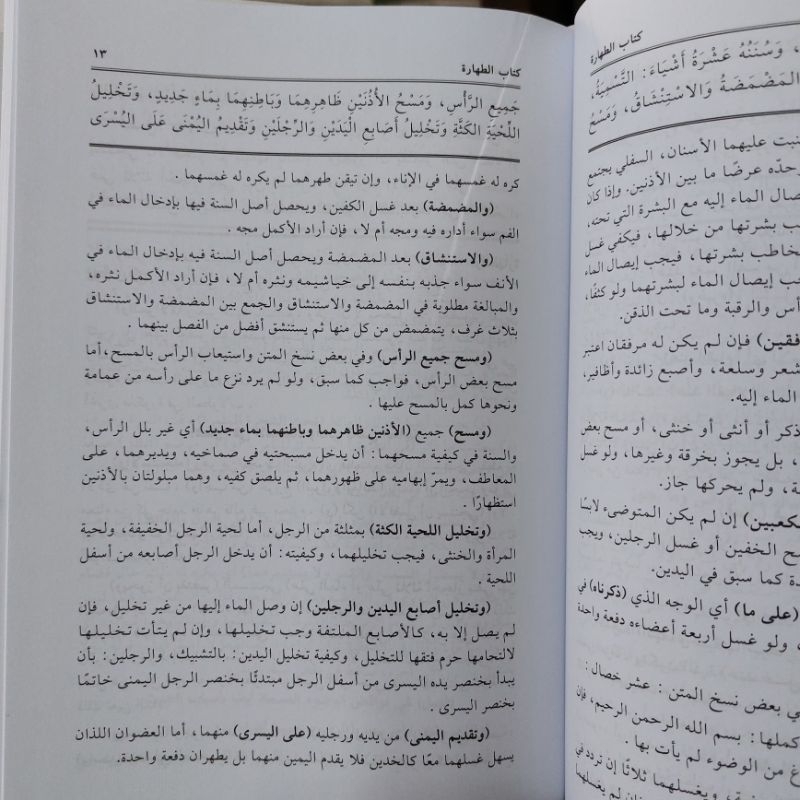 كتاب الطهارة
١٣
جَمِيعِ الرَّأْسِ، وَمَسْحُ الأُذُنَيْنِ ظَاهِرِهِمَا وَبَاطِنِهِمَا بِمَاءٍ جَدِيدٍ، وَتَخْلِيلُ
اللِّحْيَةِ الكَثَّةِ وَتَخْلِيلُ أَصَابِعِ الْيَدَيْنِ وَالرِّجْلَيْنِ وَتَقْدِيمِ الْيُمْنَى عَلَى الْيُسْرَى
كره له غمسهما في الإناء، وإن تيقن طهرهما لم يكره له غمسهما .
(والمضمضة) بعد غسل الكفين، ويحصل أصل السنة فيها بإدخال الماء في
الفم سواء أداره فيه ومجه أم لا، فإن أراد الأكمل مجه .
(والاستنشاق) بعد المضمضة ويحصل أصل السنة فيه بإدخال الماء في
الأنف سواء جذبه بنفسه إلى خياشيمه ونثره أم لا، فإن أراد الأكمل نثره،
والمبالغة مطلوبة في المضمضة والاستنشاق والجمع بين المضمضة والاستنشاق
بثلاث غرف، يتمضمض من كل منها ثم يستنشق أفضل من الفصل بينهما .
(ومسح جميع الرأس) وفي بعض نسخ المتن واستيعاب الرأس بالمسح، أما
مسح بعض الرأس، فواجب كما سبق، ولو لم يرد نزع ما على رأسه من عمامة
ونحوها كمل بالمسح عليها .
(ومسح) جميع (الأذنين ظاهرهما وباطنهما بماء جديد) أي غير بلل الرأس،
والسنة في كيفية مسحهما: أن يدخل مسبحتيه في صماخيه، ويديرهما، على
المعاطف، ويمرّ إبهاميه على ظهورهما، ثم يلصق كفيه، وهما مبلولتان بالأذنين
استظهارًا .
(وتخليل اللحية الكثة) بمثلثة من الرجل، أما لحية الرجل الخفيفة، ولحية
المرأة والخنثى، فيجب تخليلهما، وكيفيته: أن يدخل الرجل أصابعه من أسفل
اللحية .
(وتخليل أصابع اليدين والرجلين) إن وصل الماء إليها من غير تخليل، فإن
لم يصل إلا به، كالأصابع الملتفة وجب تخليلها، وإن لم يتأت تخليلها
لالتحامها حرم فتقها للتخليل، وكيفية تخليل اليدين: بالتشبيك، والرجلين: بأن
يبدأ بخنصر يده اليسرى من أسفل الرجل مبتدئًا بخنصر الرجل اليمنى خاتمًا
بخنصر اليسرى .
(وتقديم اليمنى) من يديه ورجليه (على اليسرى) منهما، أما العضوان اللذان
يسهل غسلهما معًا كالخدين فلا يقدم اليمين منهما بل يطهران دفعة واحدة.
كتاب الطهارة
، وَسُنَنُهُ عَشْرَةُ أَشْيَاءَ: التَّسْمِيَةُ،
الْمَضْمَضَةُ وَالاسْتِنْشَاقُ، وَمَسْحُ
عليهما الأسنان، السفلي يجتمع
وحدّه عرضًا ما بين الأذنين. وإذا كان
الماء إليه مع البشرة التي تحته،
بشرتها من خلالها، فيكفي غسل
بشرتها، فيجب إيصال الماء
إيصال الماء لبشرتهما ولو كثفًا،
والرقبة وما تحت الذقن.
فإن لم يكن له مرفقان اعتبر
وسلعة، وأصبع زائدة وأظافير،
الماء إليه.
ذكر أو أنثى أو خنثى، أو مسح بعض
، بل يجوز بخرقة وغيرها، ولو غسل
، ولم يحركها جاز.
إن لم يكن المتوضىء لابسًا
الخفين أو غسل الرجلين، ويجب
كما سبق في اليدين.
(على ما) أي الوجه الذي (ذكرناه) في
، ولو غسل أربعة أعضاءه دفعة واحدة
بعض نسخ المتن : عشر خصال :
: بسم الله الرحمن الرحيم، فإن
من الوضوء لم يأت بها .
، ويغسلهما ثلاثًا إن تردد في
لم يغسلهما